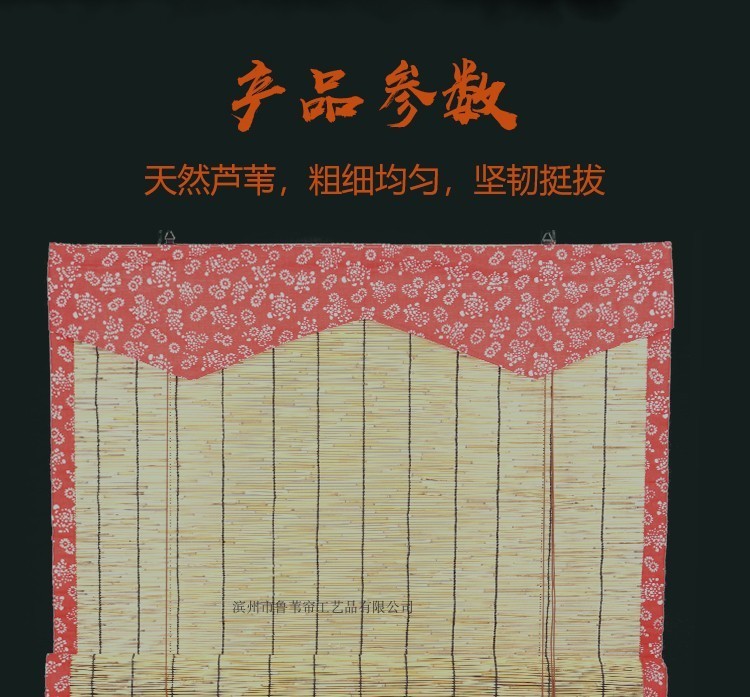 产品参数
天然芦苇，粗细均匀，坚韧挺拔
滨州市鲁苇帘工艺品有限公司